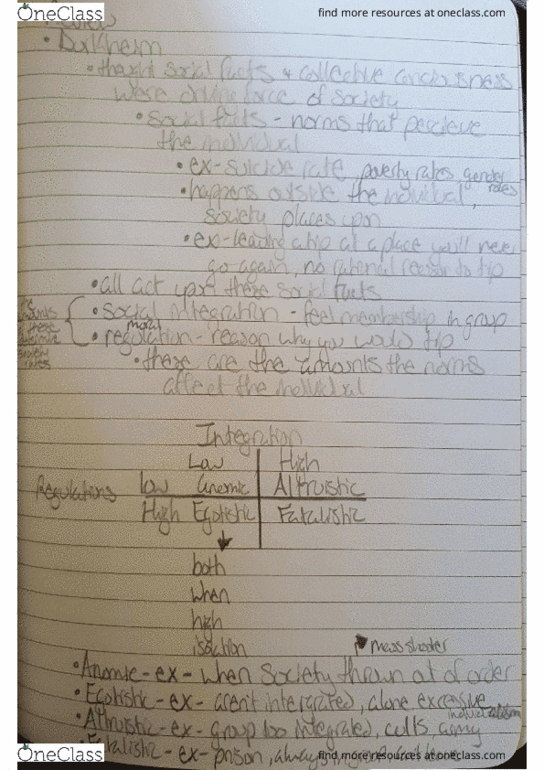 OneClass
find more resources at oneclass.com
• Durkheim
• thought social facts + collective conciousness
were driving force of society
• social facts - norms that percieve
the individual
• ex - suicide rate, poverty rates, gender
roles
• happens outside the individual,
society places upon
• ex - leaving a tip at a place you'll never
go again, no rational reason to tip
• all act upon these social facts
• social integration - feel membership in group
moral
• regulation - reason why you would tip
• these are the amounts the norms
affect the individual
Integration
Low High
Regulations low Anomic Altruistic
High Egotistic Fatalistic
both
when
high
isolation
mass shooter
• Anomic - ex - when society thrown out of order
• Egotistic - ex - aren't intergrated, alone excessive
individualism
• Altruistic - ex - group too integrated, cults army
Fatalistic - ex - prison, always
OneClass
find more resources at oneclass.com